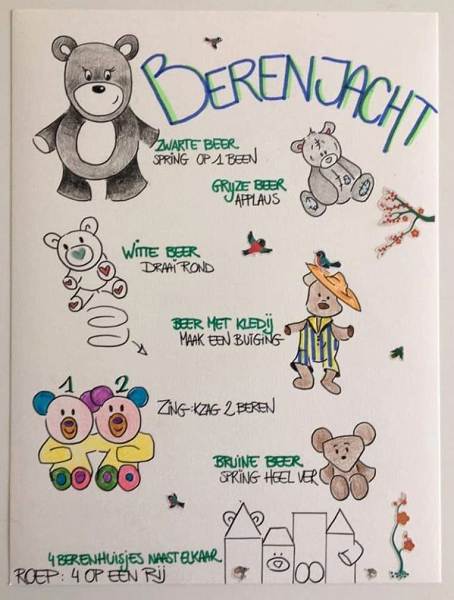 BERENJACHT
ZWARTE BEER
SPRING OP 1 BEEN
GRIJZE BEER
APPLAUS
WITTE BEER
DRAAI ROND
BEER MET KLEDIJ
MAAK EEN BUIGING
1 2
ZING: IK ZAG 2 BEREN
BRUINE BEER
SPRING HEEL VER
4 BERENHUISJES NAAST ELKAAR
ROEP: 4 OP EEN RIJ